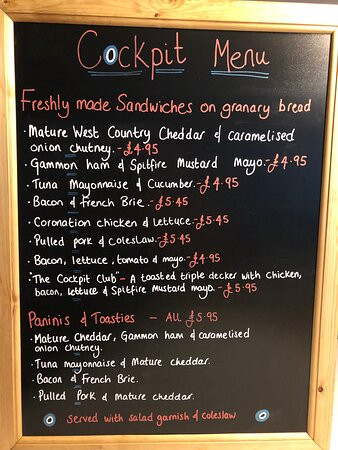 Cockpit Menu
Freshly made Sandwiches on granary bread
· Mature West Country Cheddar & caramelised
onion chutney. - £4.95
· Gammon ham & Spitfire Mustard mayo. - £4.95
· Tuna Mayonnaise & Cucumber. - £4.95
· Bacon & French Brie. - £5.45
· Coronation chicken & lettuce. - £5.45
· Pulled pork & coleslaw. - £5.45
· Bacon, lettuce, tomato & mayo. - £4.95
· "The Cockpit Club" - A toasted triple decker with chicken,
bacon, lettuce & Spitfire Mustard mayo. - £5.95
Paninis & Toasties - ALL £5.95
· Mature Cheddar, Gammon ham & caramelised
onion chutney.
· Tuna mayonnaise & Mature cheddar.
· Bacon & French Brie.
· Pulled Pork & Mature cheddar.
Served with salad garnish & coleslaw